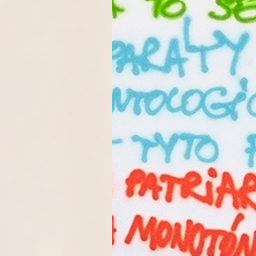 TO SE
PARALTY
NTOLOGIC
TYTO
PATRIAR
MONOTÓN